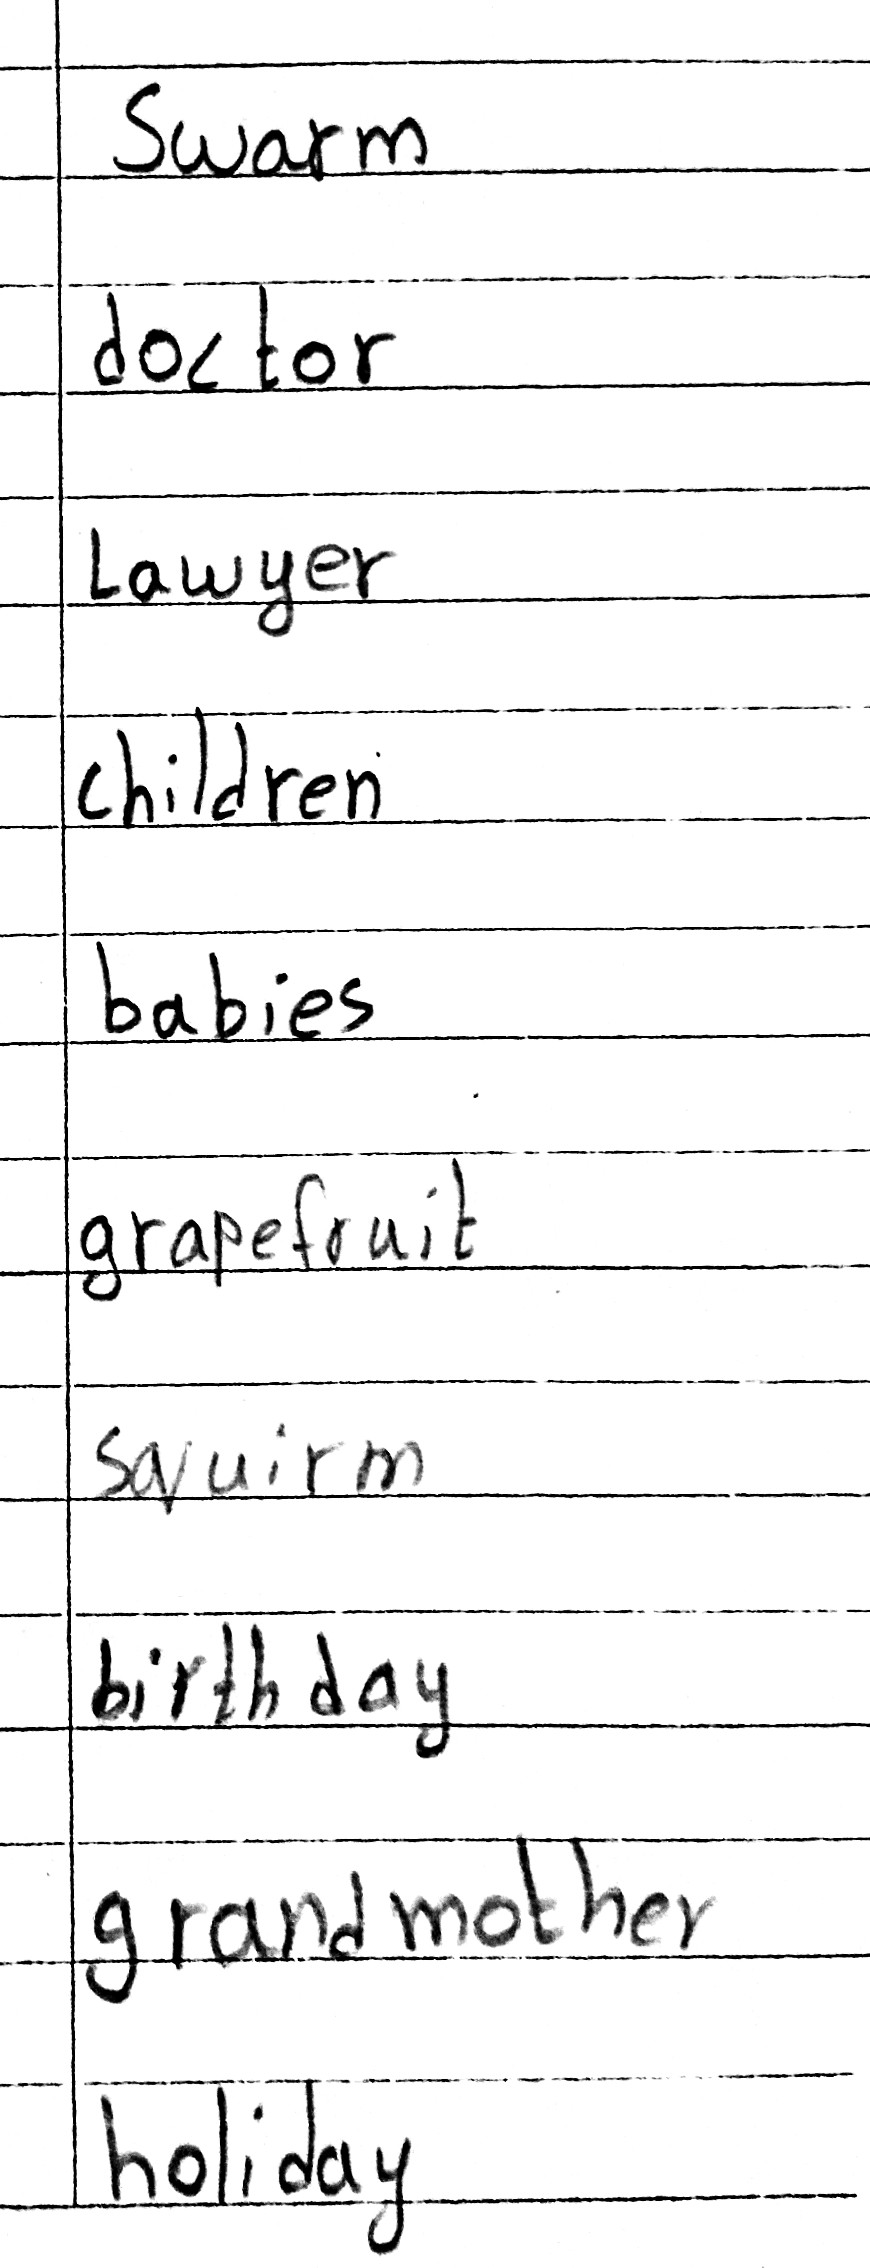 Swarm
doctor
Lawyer
children
babies
grapefruit
squirm
birthday
grandmother
holiday